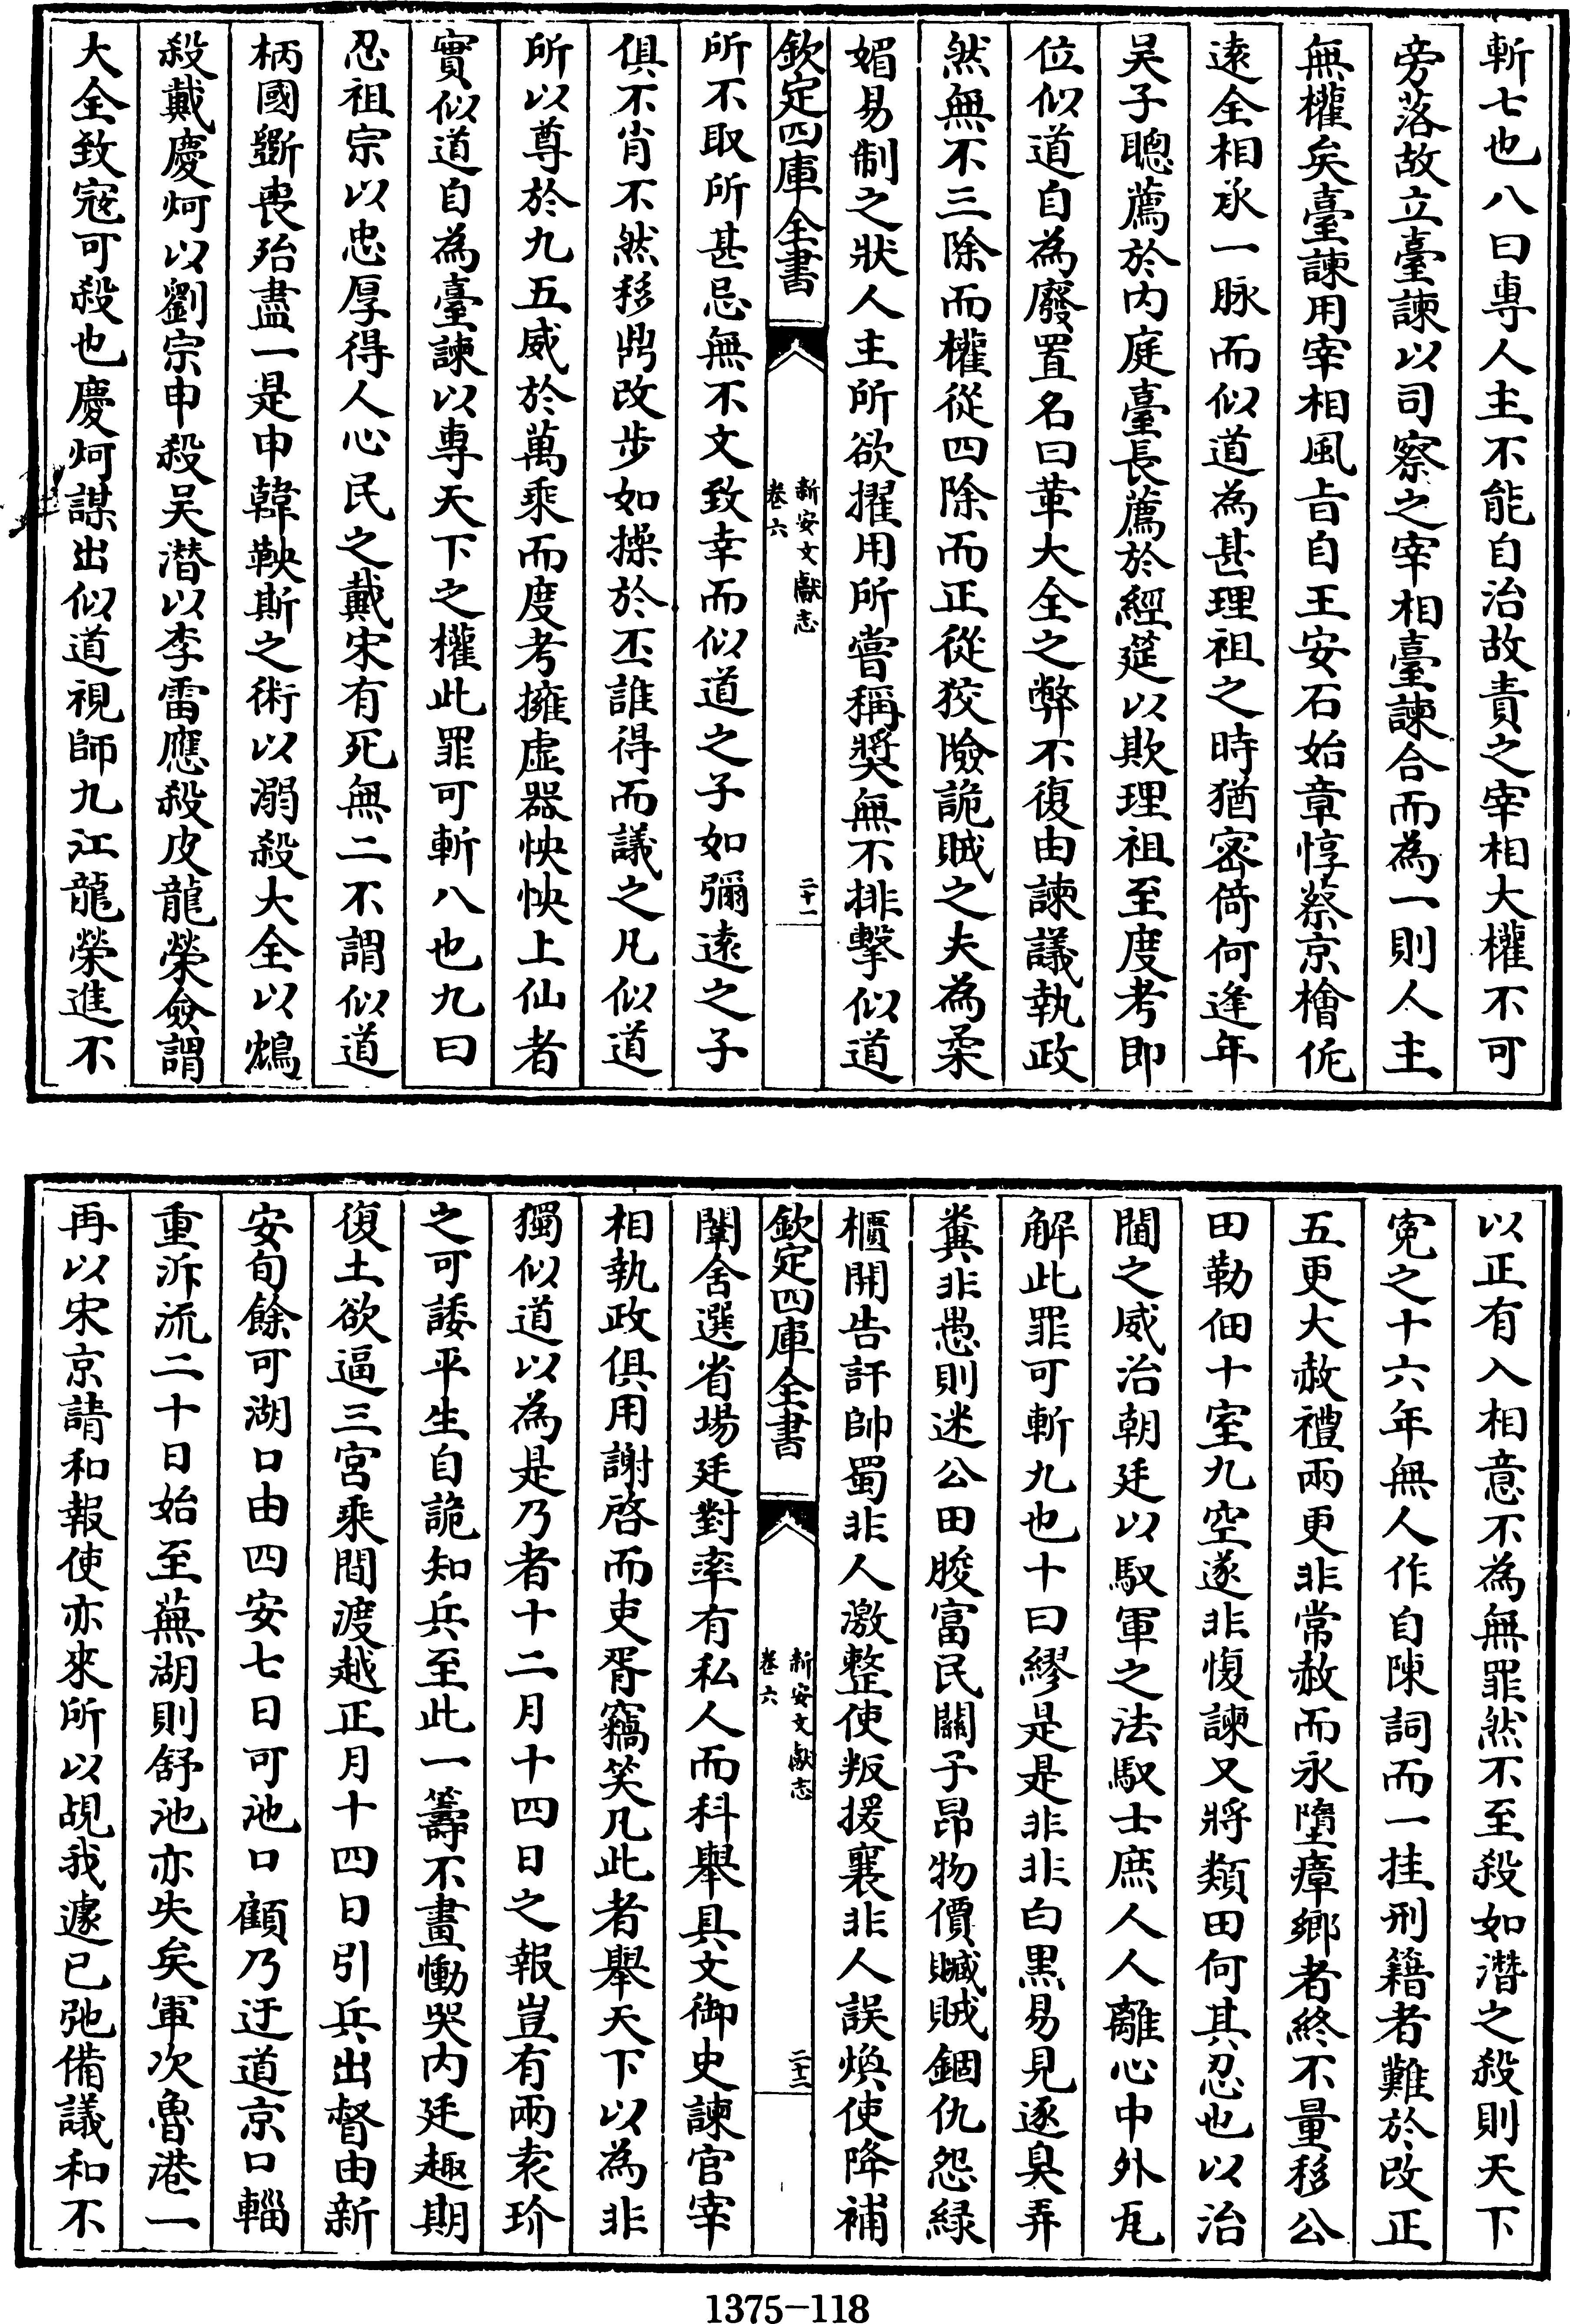 斬七也八曰專人主不能自治故責之宰相大權不可
旁落故立臺諫以司察之宰相臺諫合而為一則人主
無權矣臺諫用宰相風㫖自王安石始章惇蔡京檜侂
逺全相承一脉而似道為甚理祖之時猶密倚何逢年
吴子聰薦於内庭臺長薦於經筵以欺理祖至度考即
位似道自為廢置名曰革大全之弊不復由諫議執政
然無不三除而權從四除而正從狡險詭賊之夫為柔
媚易制之狀人主所欲擢用所嘗稱獎無不排擊似道
欽定四庫全書
新安文獻志
卷六
二十一
所不取所甚忌無不文致幸而似道之子如彌逺之子
俱不肖不然移鼎改步如操於丕誰得而議之凡似道
所以尊於九五威於萬乘而度考擁虚器怏怏上仙者
實似道自為臺諫以專天下之權此罪可斬八也九曰
忍祖宗以忠厚得人心民之戴宋有死無二不謂似道
柄國斵喪殆盡一是申韓鞅斯之術以溺殺大全以鴆
殺戴慶炣以劉宗申殺吴潜以李雷應殺皮龍榮僉謂
大全致寇可殺也慶炣謀出似道視師九江龍榮進不
以正有入相意不為無罪然不至殺如潜之殺則天下
寃之十六年無人作自陳詞而一挂刑籍者難於改正
五更大赦禮兩更非常赦而永墮瘴鄉者終不量移公
田勒佃十室九空遂非愎諫又將類田何其忍也以治
閫之威治朝廷以馭軍之法馭士庶人人離心中外瓦
解此罪可斬九也十曰繆是是非非白黒易見逐臭弄
糞非愚則迷公田朘富民關子昂物價贓賊錮仇怨緑
櫃開告訐帥蜀非人激整使叛援襄非人誤煥使降補
欽定四庫全書
新安文獻志
卷六
二十二
闈舍選省場廷對率有私人而科舉具文御史諫官宰
相執政俱用謝啓而吏胥竊笑凡此者舉天下以為非
獨似道以為是乃者十二月十四日之報豈有兩袁玠
之可諉平生自詭知兵至此一籌不畫慟哭内廷趣期
復土欲逼三宫乘間渡越正月十四日引兵出督由新
安旬餘可湖口由四安七日可池口顧乃迂道京口輜
重泝流二十日始至蕪湖則舒池亦失矣軍次魯港一
再以宋京請和報使亦來所以覘我遽已弛備議和不
1375-118